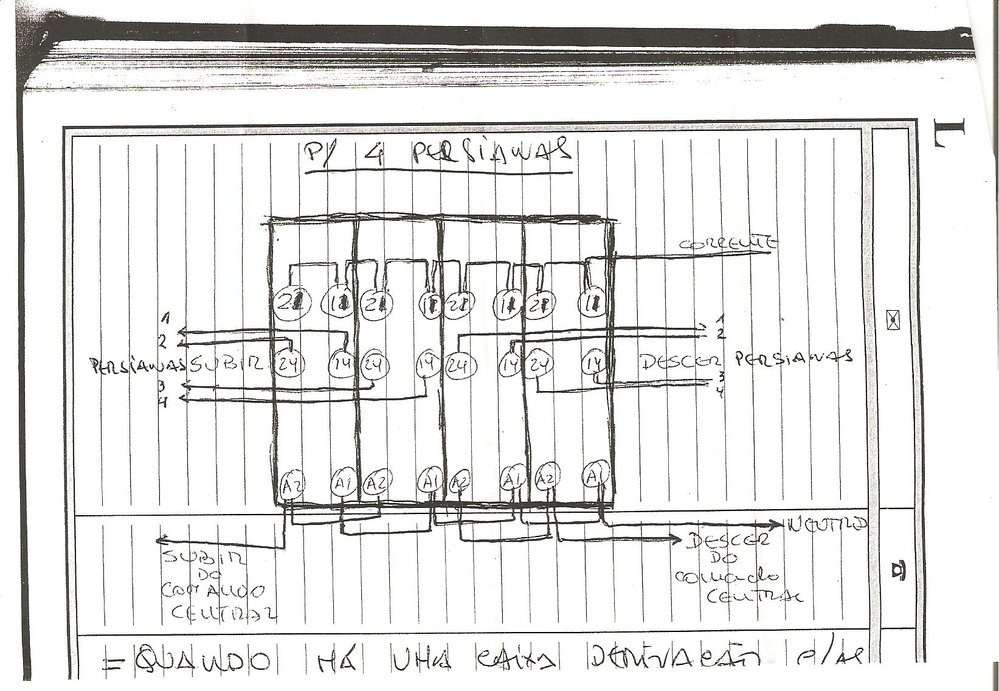 P/ 4 PERSIANAS
CORRENTE
21 11 21 11 21 11 21 11
1 1
2 2
PERSIANAS SUBIR 24 14 24 14 24 14 24 14 DESCER PERSIANAS
3 3
4 4
A2 A1 A2 A1 A2 A1 A2 A1
NEUTRO
SUBIR
DO
COMANDO
CENTRAL
DESCER
DO
COMANDO
CENTRAL
= QUANDO HÁ UMA CAIXA DERIVAÇÃO P/AS
L